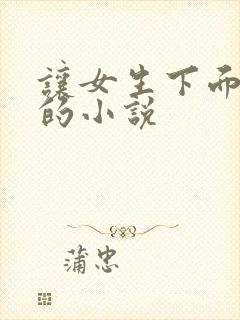 讓女生下
的小說
蒲忠